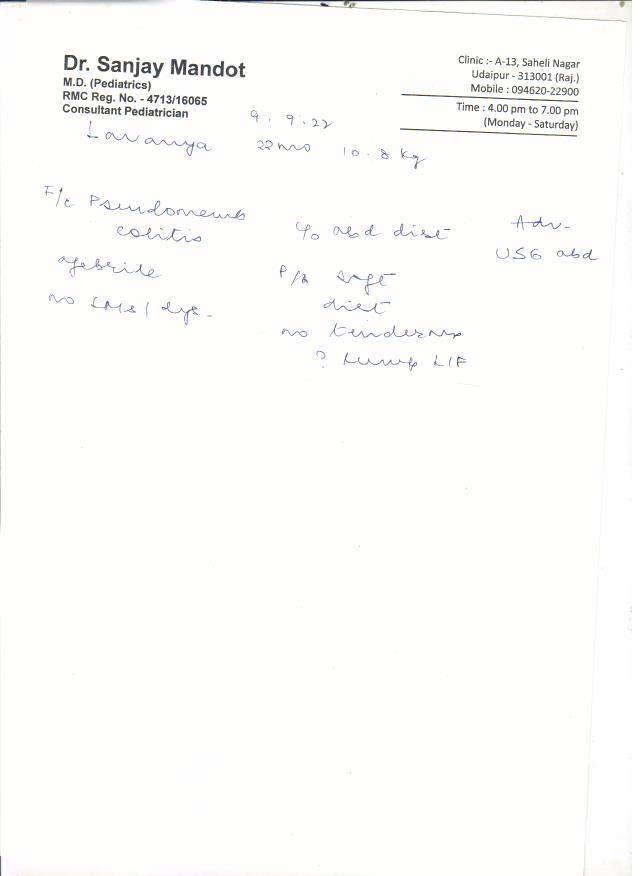 Dr. Sanjay Mandot
M.D. (Pediatrics)
RMC Reg. No. - 4713/16065
Consultant Pediatrician
Clinic :- A-13, Saheli Nagar
Udaipur - 313001 (Raj.)
Mobile : 094620-22900
Time : 4.00 pm to 7.00 pm
(Monday - Saturday)
9.9.22
Lavanya 22mo 10.8 kg
F/c Pseudomemb
colitis
afebrile
no / dys.
c/o abd dist
P/A soft
dist
no tenderness
? Lump LIF
Adv-
USG abd